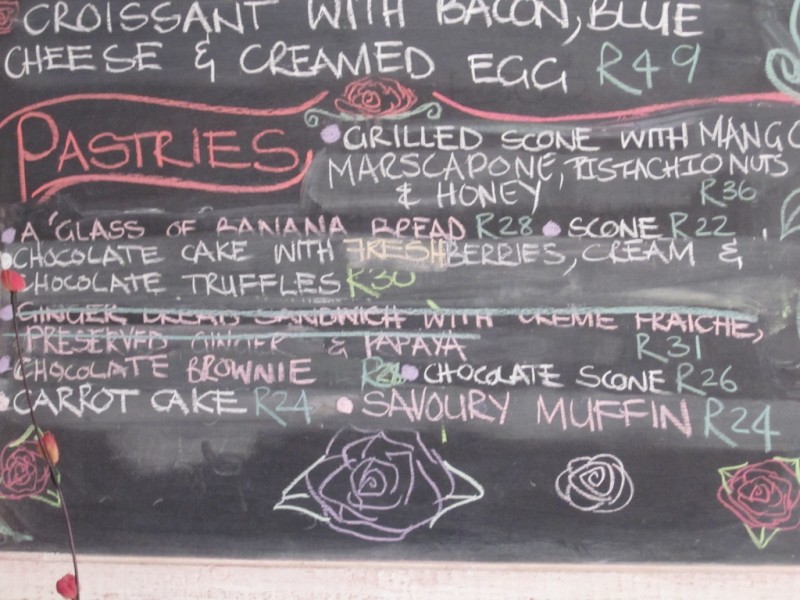 CROISSANT WITH BACON, BLUE
CHEESE & CREAMED EGG R49
PASTRIES
GRILLED SCONE WITH MANGO
MARSCAPONE, PISTACHIO NUTS
& HONEY R36
A GLASS OF BANANA BREAD R28 SCONE R22
CHOCOLATE CAKE WITH FRESH BERRIES, CREAM &
CHOCOLATE TRUFFLES R30
GINGER BREAD SANDWICH WITH CREME FRAICHE,
PRESERVED GINGER & PAPAYA R31
CHOCOLATE BROWNIE CHOCOLATE SCONE R26
CARROT CAKE R24 SAVOURY MUFFIN R24